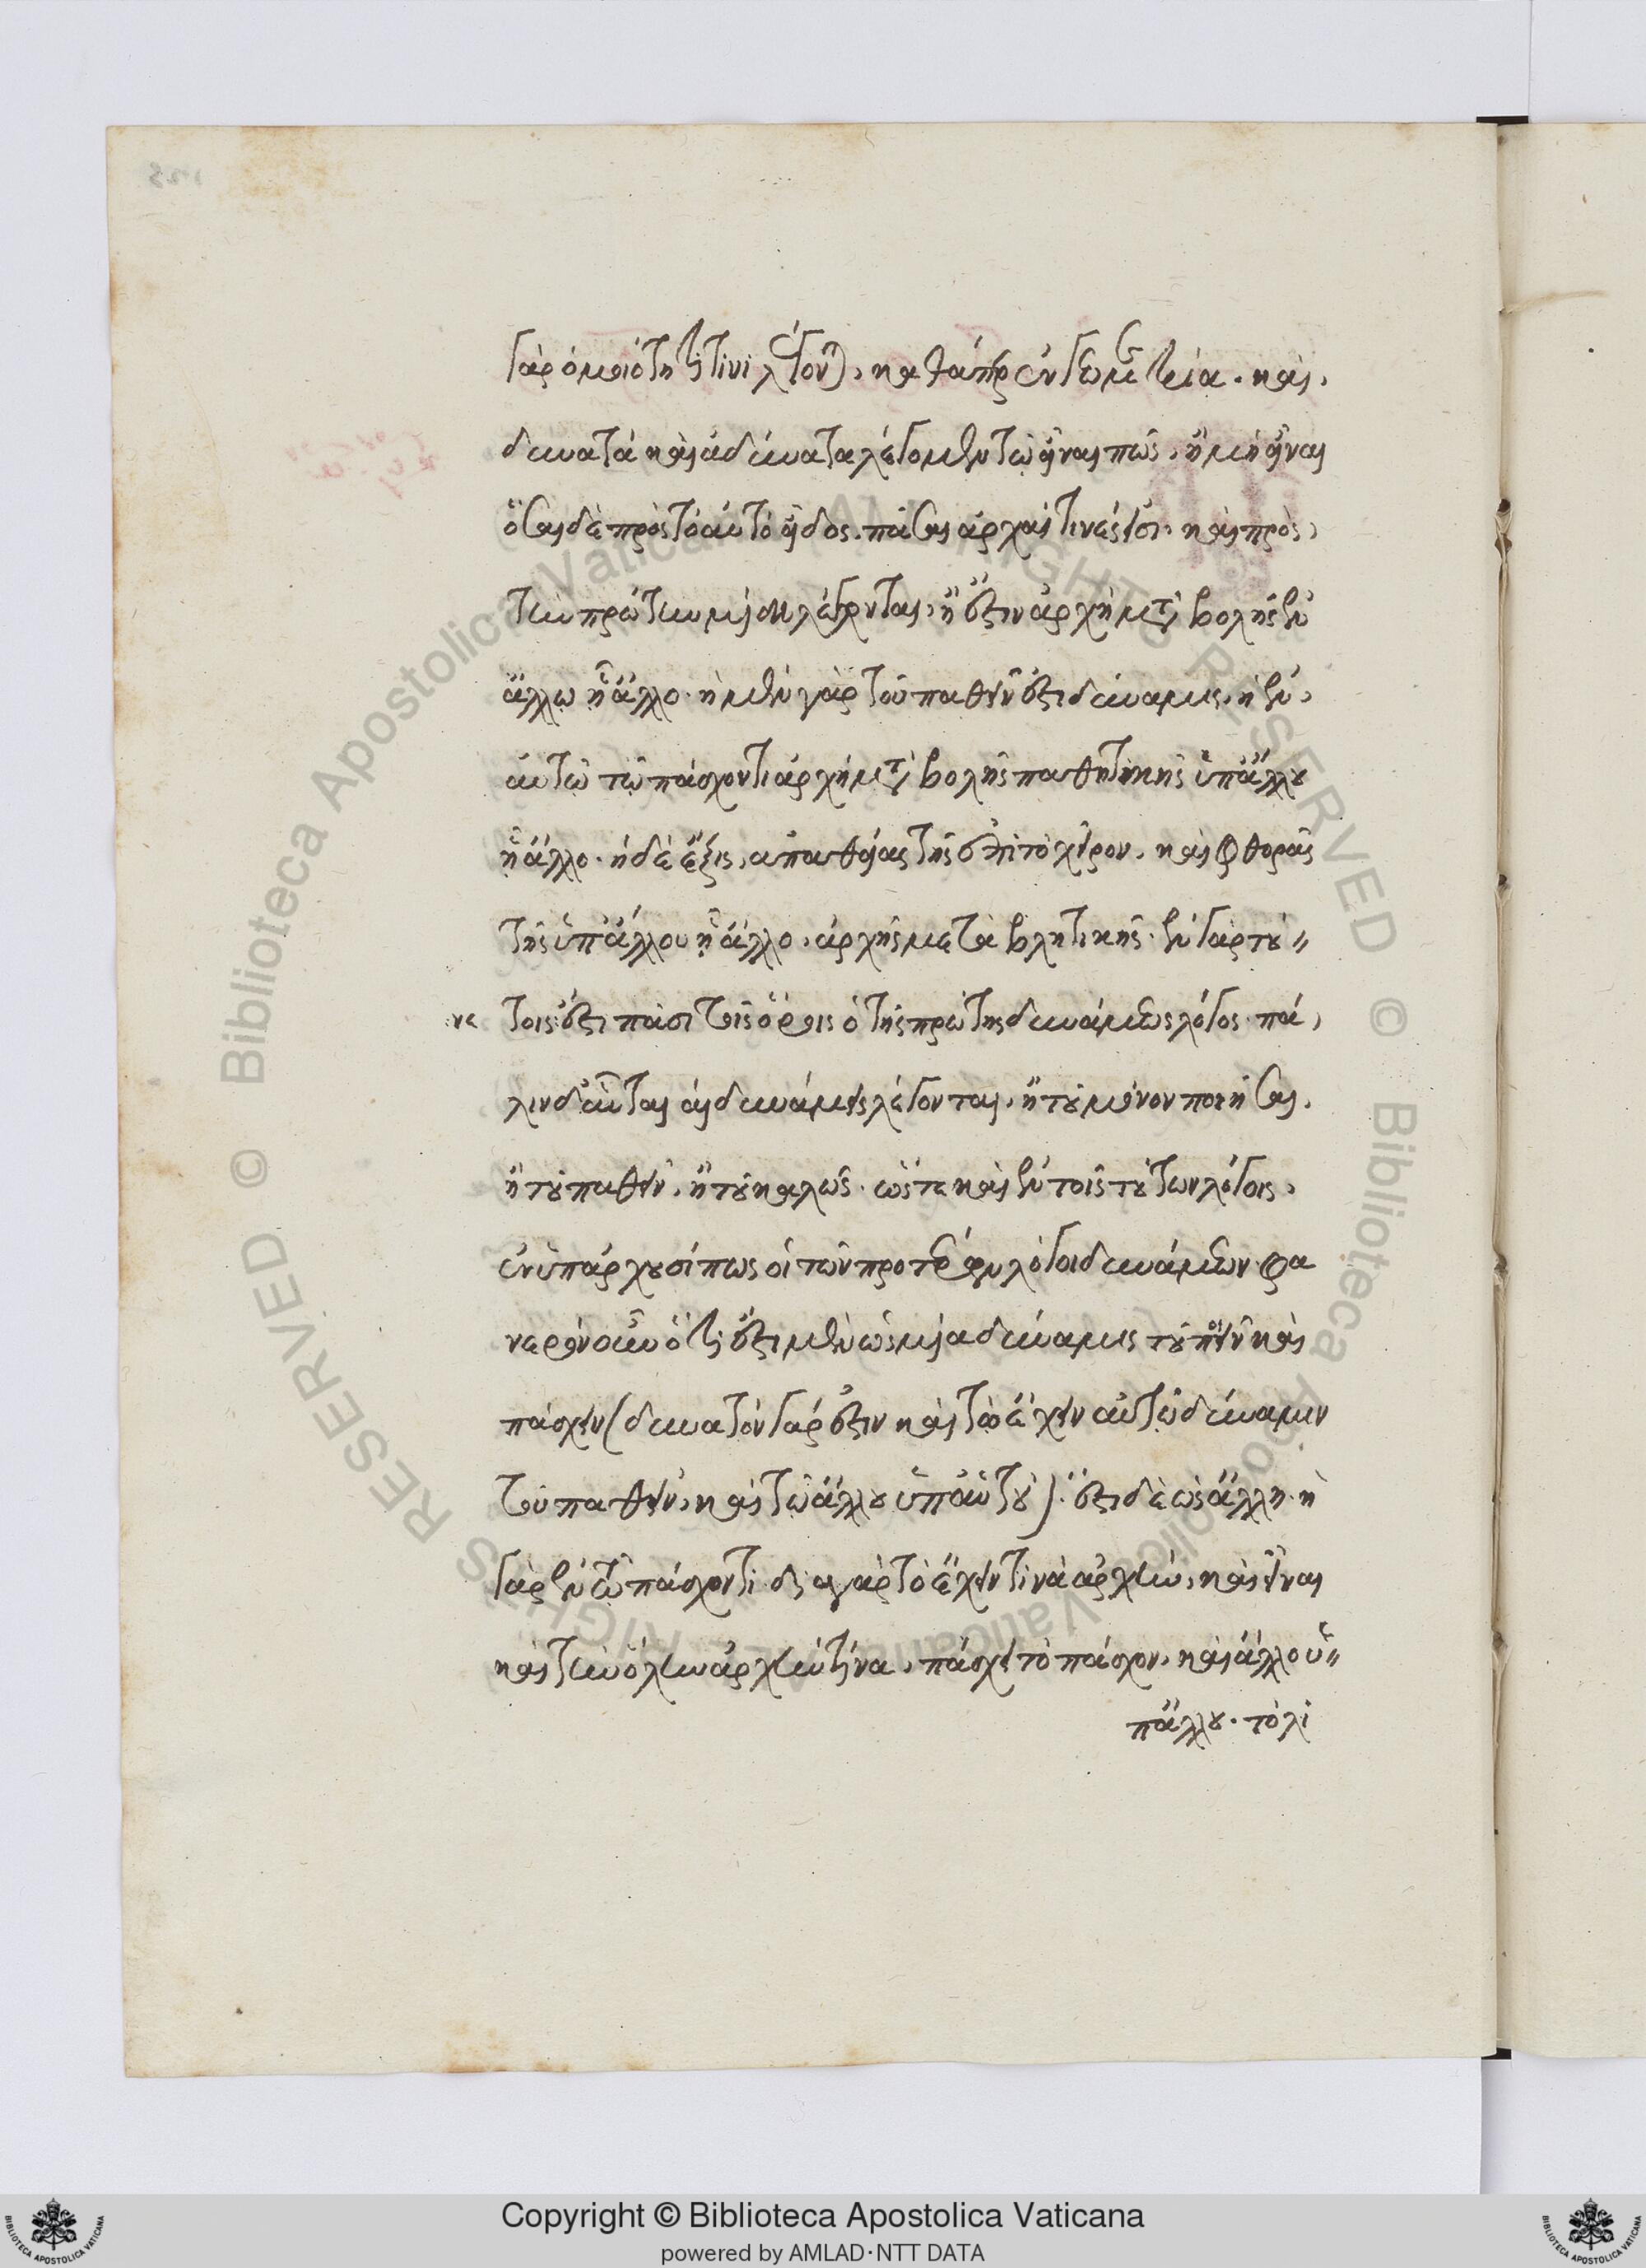 γὰρ ὁμοιότητί τινι λέγονται, καθάπερ ἐν γεωμετρία. καὶ,
δυνατὰ καὶ ἀδύνατα λέγομεν τῷ εἶναι πῶς, ἢ μὴ εἶναι
ὅσαι δὲ πρὸς τὸ αὐτὸ εἶδος. πᾶσαι ἀρχαί τινές εἰσι, καὶ πρὸς,
τὴν πρώτην μίαν λέγονται, ἥ ἐστιν ἀρχὴ μεταβολῆς ἐν
ἄλλῳ ᾗ ἄλλο. ἡ μὲν γὰρ τοῦ παθεῖν ἐστι δύναμις, ἡ ἐν,
αὐτῷ τῷ πάσχοντι ἀρχὴ μεταβολῆς παθητικῆς ὑπ' ἄλλου
ᾗ ἄλλο. ἡ δὲ ἕξις, ἀπαθείας τῆς ἐπὶ τὸ χεῖρον, καὶ φθορᾶς
τῆς ὑπ' ἄλλου ᾗ ἄλλο, ἀρχῆς μεταβλητικῆς. ἐν γὰρ τού
τοις ἔστι πᾶσι τοῖς ὅροις ὁ τῆς πρώτης δυνάμεως λόγος. πά,
λιν δ' αὗται αἱ δυνάμεις λέγονται, ἢ τοῦ μόνον ποιῆσαι,
ἢ τοῦ παθεῖν, ἢ τοῦ καλῶς. ὥστε καὶ ἐν τοῖς τούτων λόγοις,
ἐνυπάρχουσί πως οἱ τῶν προτέρων λόγοι δυνάμεων. φα
νερὸν οὖν ὅτι ἔστι μὲν ὡς μία δύναμις τοῦ ποιεῖν καὶ
πάσχειν (δυνατὸν γάρ ἐστιν καὶ τῷ ἔχειν αὐτῷ δύναμιν
τοῦ παθεῖν, καὶ τῷ ἄλλου ὑπ' αὐτοῦ). ἔστι δὲ ὡς ἄλλη. ἡ
γὰρ ἐν τῷ πάσχοντι. διὰ γὰρ τὸ ἔχειν τινὰ ἀρχὴν, καὶ εἶναι
καὶ τὴν ὕλην ἀρχήν τινα, πάσχει τὸ πάσχον, καὶ ἄλλο ὑ
π' ἄλλου. τὸ λι
Copyright © Biblioteca Apostolica Vaticana
powered by AMLAD·NTT DATA